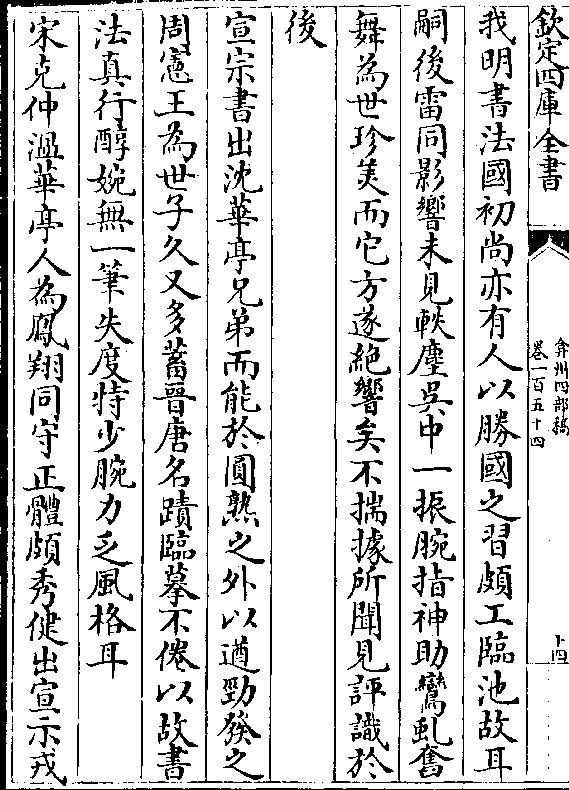 欽定四庫全書
弇州四部稿
卷一百五十四
十四
我明書法國初尚亦有人以勝國之習頗工臨池故耳
嗣後雷同影響未見軼塵吳中一振腕指神助鸞虬奮
舞為世珍美而它方遂絕響矣不揣據所聞見評識於
後
宣宗書出沈華亭兄弟而能於圓熟之外以遒勁發之
周憲王為世子久又多蓄晉唐名蹟臨摹不倦以故書
法真行醇婉無一筆失度特少腕力乏風格耳
宋克仲溫華亭人為鳳翔同守正體頗秀健出宣示戎